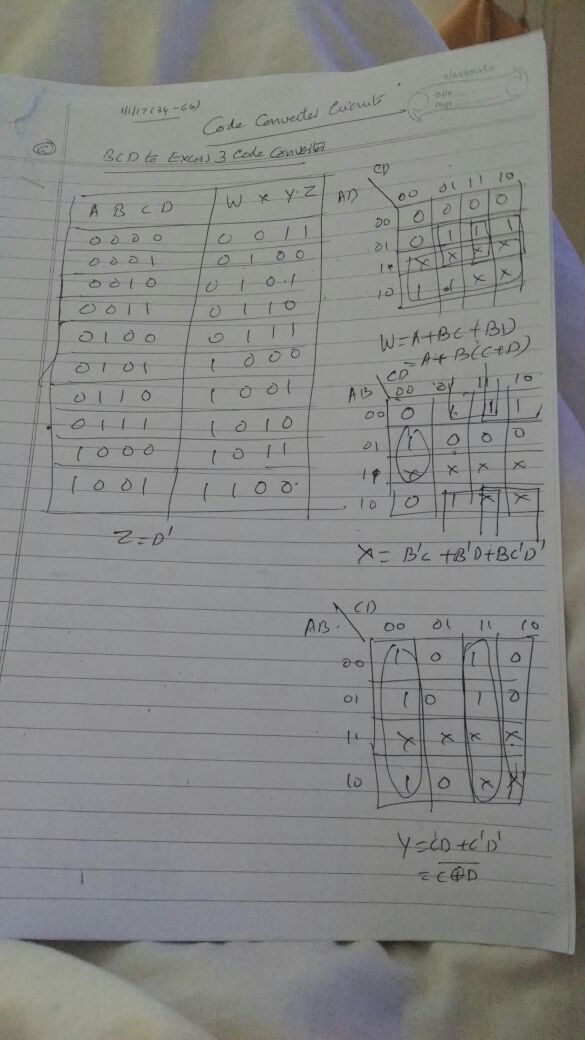 1/1/17 (34-64)
classmate
Date
Page
Code Converter Circuits
BCD to Excess 3 Code Converter
A B C D W X Y Z
0 0 0 0 0 0 1 1
0 0 0 1 0 1 0 0
0 0 1 0 0 1 0 1
0 0 1 1 0 1 1 0
0 1 0 0 0 1 1 1
0 1 0 1 1 0 0 0
0 1 1 0 1 0 0 1
0 1 1 1 1 0 1 0
1 0 0 0 1 0 1 1
1 0 0 1 1 1 0 0
Z = D'
CD
AD 00 01 11 10
00 0 0 0 0
01 0 1 1 1
11 x x x x
10 1 1 x x
W = A + BC + BD
= A + B(C + D)
CD
AB 00 01 11 10
00 0 1 1 1
01 1 0 0 0
11 x x x x
10 0 1 x x
X = B'C + B'D + BC'D'
CD
AB. 00 01 11 10
00 1 0 1 0
01 1 0 1 0
11 x x x x
10 1 0 x x
Y = CD + C'D'
= C⊕D